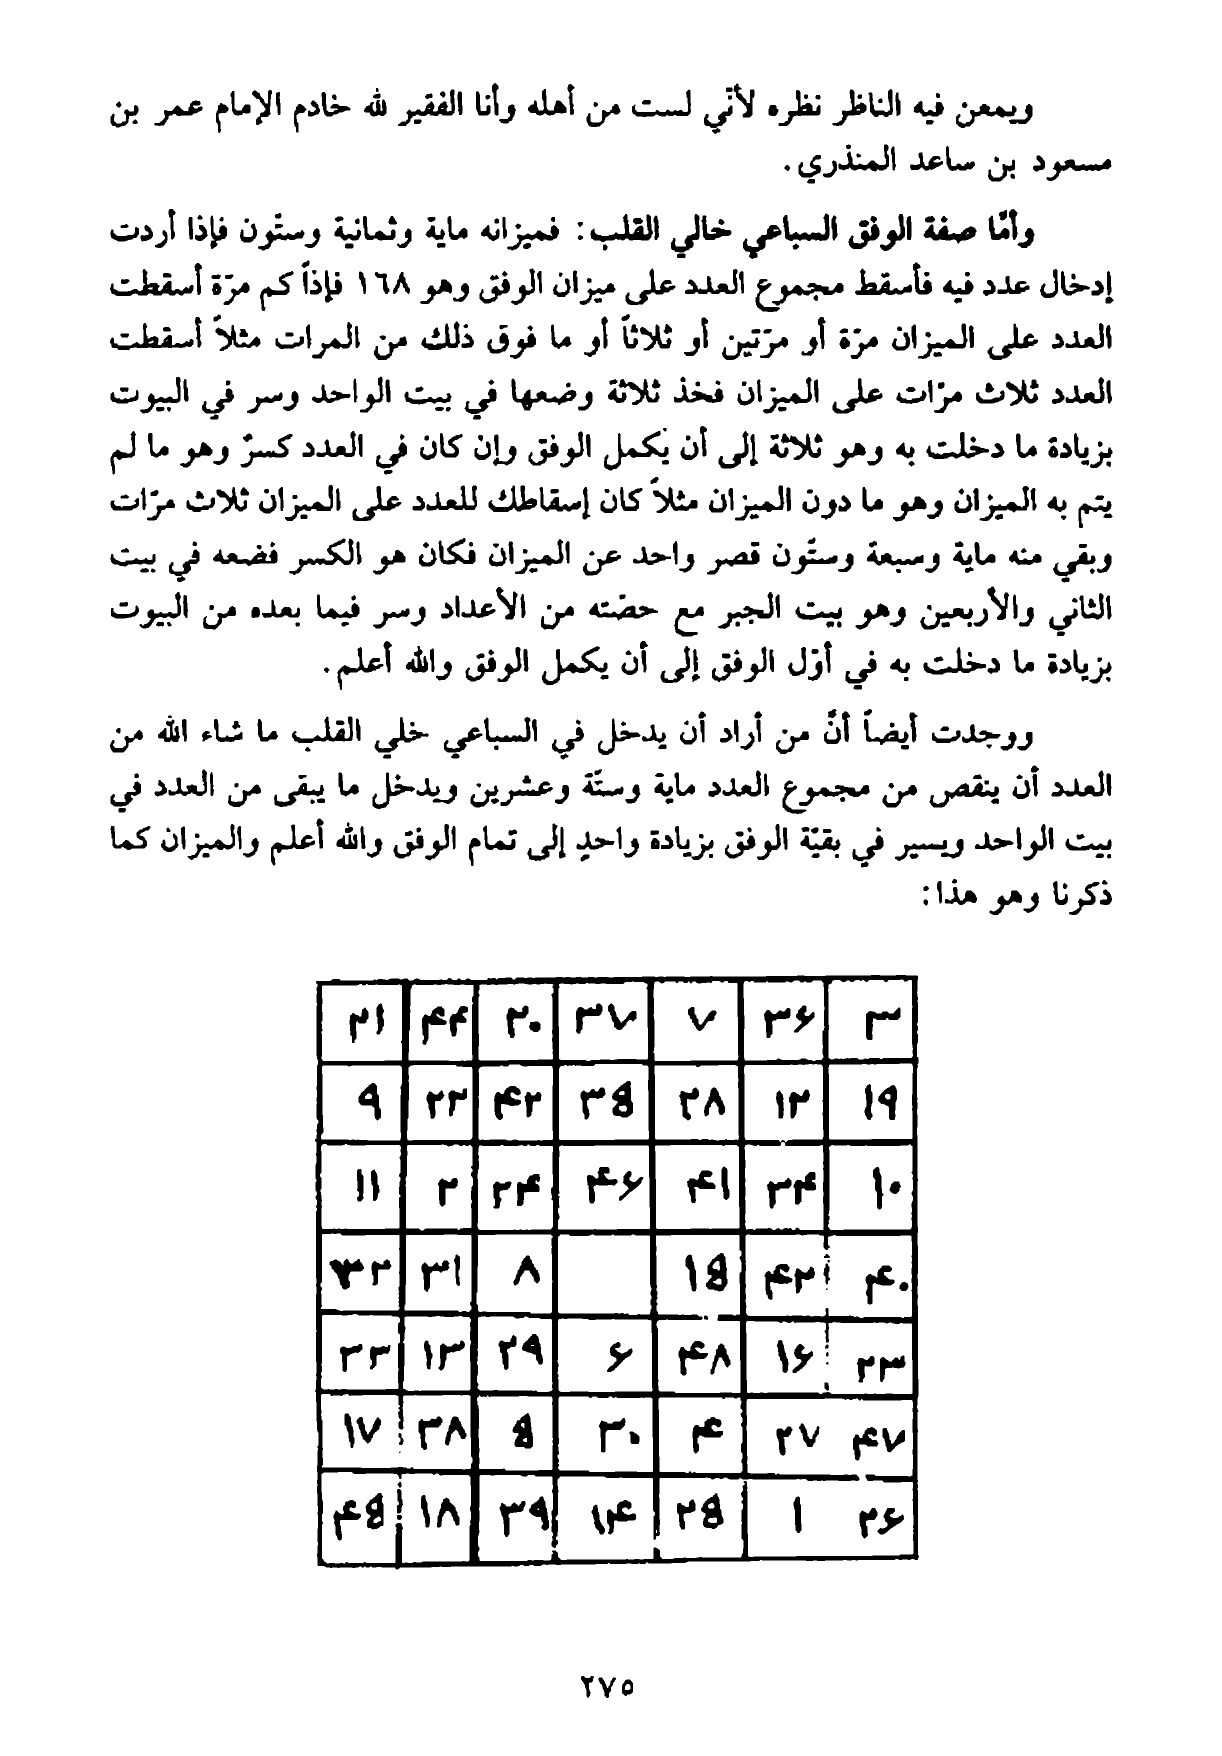 ويمعن فيه الناظر نظره لأنّي لست من أهله وأنا الفقير لله خادم الإمام عمر بن
مسعود بن ساعد المنذري.
وأمّا صفة الوفق السباعي خالي القلب: فميزانه ماية وثمانية وستّون فإذا أردت
إدخال عدد فيه فأسقط مجموع العدد على ميزان الوفق وهو ١٦٨ فإذاً كم مرّة أسقطت
العدد على الميزان مرّة أو مرّتين أو ثلاثاً أو ما فوق ذلك من المرات مثلاً أسقطت
العدد ثلاث مرّات على الميزان فخذ ثلاثة وضعها في بيت الواحد وسر في البيوت
بزيادة ما دخلت به وهو ثلاثة إلى أن يكمل الوفق وإن كان في العدد كسرٌ وهو ما لم
يتم به الميزان وهو ما دون الميزان مثلاً كان إسقاطك للعدد على الميزان ثلاث مرّات
وبقي منه ماية وسبعة وستّون قصر واحد عن الميزان فكان هو الكسر فضعه في بيت
الثاني والأربعين وهو بيت الجبر مع حصّته من الأعداد وسر فيما بعده من البيوت
بزيادة ما دخلت به في أوّل الوفق إلى أن يكمل الوفق والله أعلم.
ووجدت أيضاً أنَّ من أراد أن يدخل في السباعي خلي القلب ما شاء الله من
العدد أن ينقص من مجموع العدد ماية وستّة وعشرين ويدخل ما يبقى من العدد في
بيت الواحد ويسير في بقيّة الوفق بزيادة واحدٍ إلى تمام الوفق والله أعلم والميزان كما
ذكرنا وهو هذا:
٣ ٣۶ ٧ ٣٧ ٢٠ ۴۴ ٢١
١٩ ١٢ ٢٨ ٣٥ ۴٢ ٢٣ ٩
١٠ ٣۴ ۴١ ۴۶ ٢۴ ٢ ١١
۴٠ ۴٢ ١٥ ٨ ٣١ ٣٢
٢٣ ١۶ ۴٨ ۶ ٢٩ ١٣ ٣٣
۴٧ ٢٧ ۴ ٣٠ ٥ ٣٨ ١٧
٢۶ ١ ٢٥ ١۴ ٣٩ ١٨ ۴٥
٢٧٥